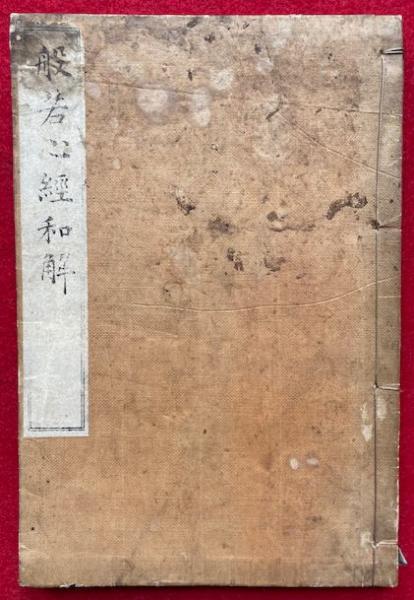 般若心經和解